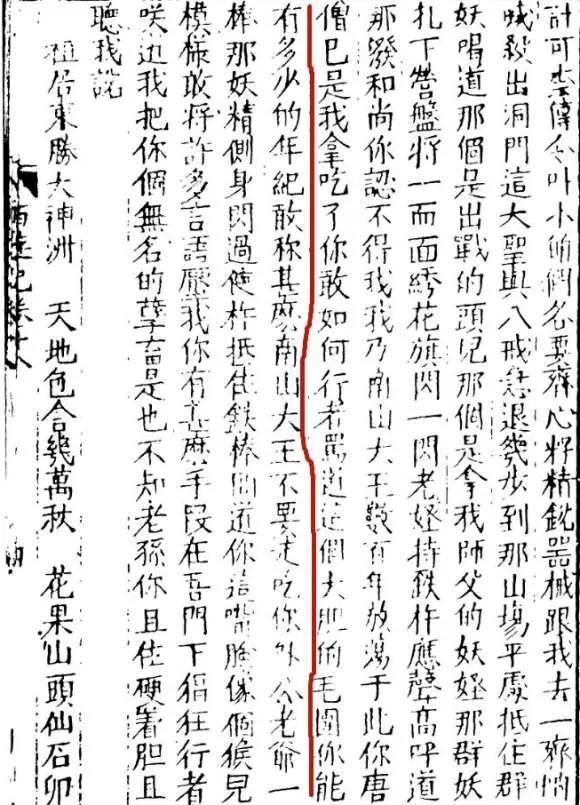 計可傳令叫小的們各要齊心將精銳器械跟我去一齊吶
喊殺出洞門這大聖與八戒急退幾步到那山場平處抵住群
妖喝道那個是出戰的頭兒那個是拿我師父的妖怪那群妖
扎下營盤將一而面綉花旗閃一閃老怪持鉄杵應聲高呼道
那潑和尚你認不得我我乃南山大王數有年放蕩于此你唐
僧已是我拿吃了你敢如何行者罵道這個大胆的毛團你能
有多少的年紀敢称甚麽南山大王不要走吃你外公老爺一
棒那妖精側身閃過使杵抵住鉄棒問道你這嘴臉像個猴兒
模樣敢將許多言語壓我你有甚麽手段在吾門下猖狂行者
咲道我把你個無名的孽畜是也不知老孫你且住硬着胆且
聽我說
祖居東勝大神洲　天地色合幾萬秋　花果山頭仙石卵